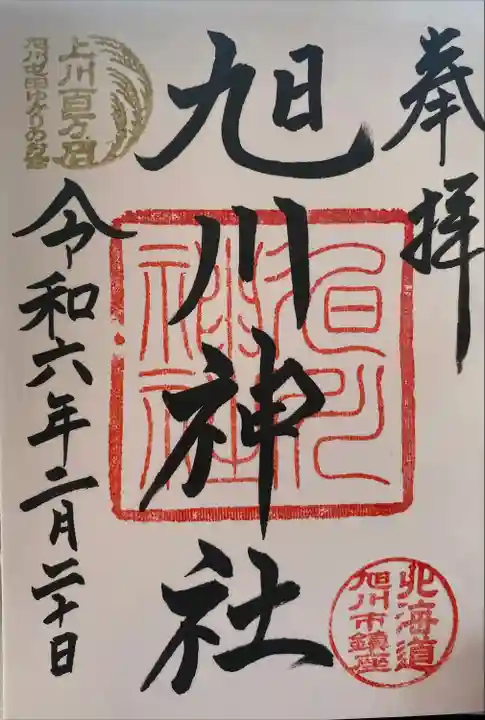 奉拝
旭川神社
令和六年二月二十日
上川百万石
旭川
神社
北海道
旭川市鎮座